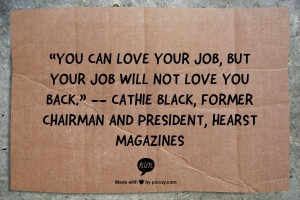 “YOU CAN LOVE YOUR JOB, BUT
YOUR JOB WILL NOT LOVE YOU
BACK.” –– CATHIE BLACK, FORMER
CHAIRMAN AND PRESIDENT, HEARST
MAGAZINES
Made with ♥ by picozy.com